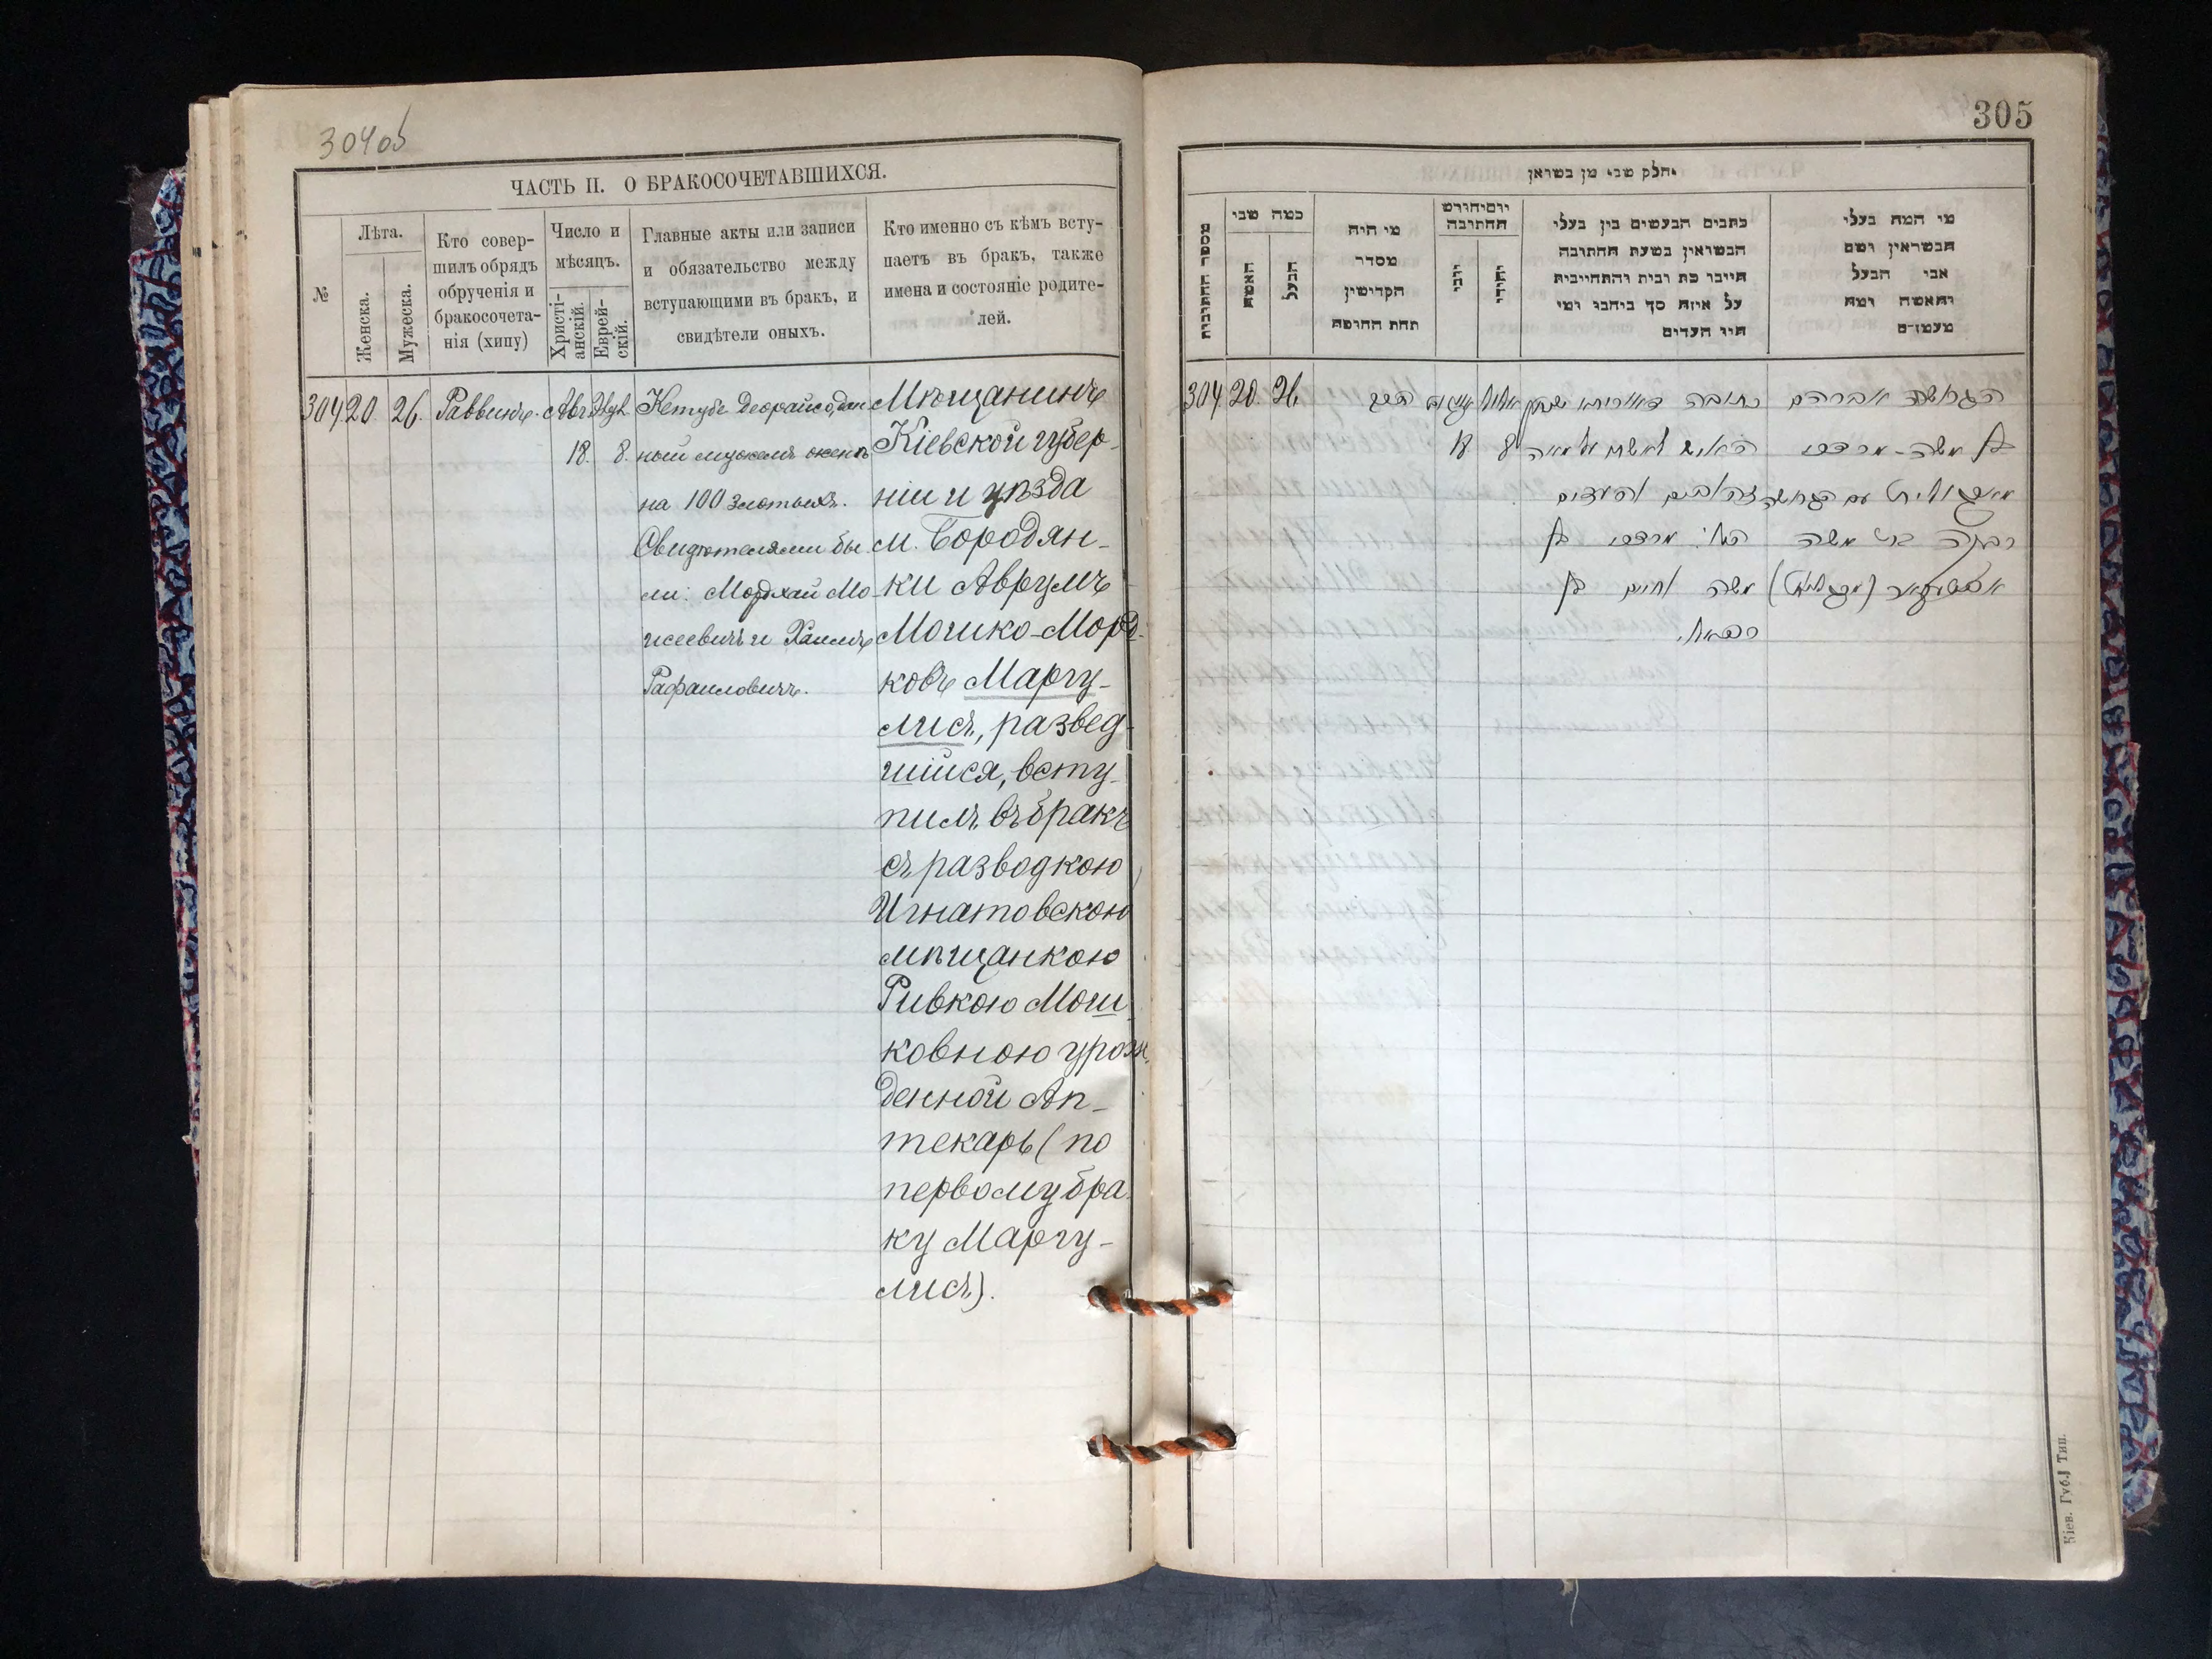 304об
ЧАСТЬ II. О БРАКОСОЧЕТАВШИХСЯ.
№
Лѣта.
Женска.
Мужеска.
Кто совер-
шилъ обрядъ
обрученія и
бракосочета-
нія (хипу)
Число и
мѣсяцъ.
Христі-
анскій.
Еврей-
скій.
Главные акты или записи
и обязательство между
вступающими въ бракъ, и
свидѣтели оныхъ.
Кто именно съ кѣмъ всту-
паетъ въ бракъ, также
имена и состояніе родите-
лей.
304
20.
26.
Раввинъ.
Авг.
18.
8.
Кетубе деорайсо, дан
ный мужемъ женѣ
на 100 злотыхъ.
Свидѣтелями бы
ли: Мордхай Мо
шкевичъ и Хаимъ
Рафаиловичъ.
Мѣщанинъ
Кіевской губер-
ніи и уѣзда
м. Бородян-
ки Аврумъ
Мошко-Морд-
ковъ Маргу-
лисъ, развед-
шійся, всту-
пилъ въ бракъ
съ разводкою
Игнатовскою
мѣщанкою
Ривкою Мош
ковною урож
денной Ап-
текарь (по
первому бра
ку Маргу-
лисъ).
305
חלק שני מן נשואין
כמה שני
האשה
הבעל
מי היה
מסדר
הקדושין
תחת החופה
יום וחודש
החתונה
נוצרי
יהודי
כתבים הנעשים בין בעלי
הנשואין בשעת החתונה
חייבו כת ובית והתחייבות
על איזה סך ביחבו ומי
היו העדים
מי המה בעלי
הנשואין ושם
אבי הבעל
והאשה ומה
מעמדם
304.
20.
26.
הרב
18
8
הגרוש אברהם
בן משה-מרדכי
מארגוליס עם הגרושה
רבקה בת משה
כתובה דאורייתא
האיש לאשתו
זהובים והעדים
הי' מרדכי בן
משה וחיים בן
רפאל.
Кіев. Губ. Тип.